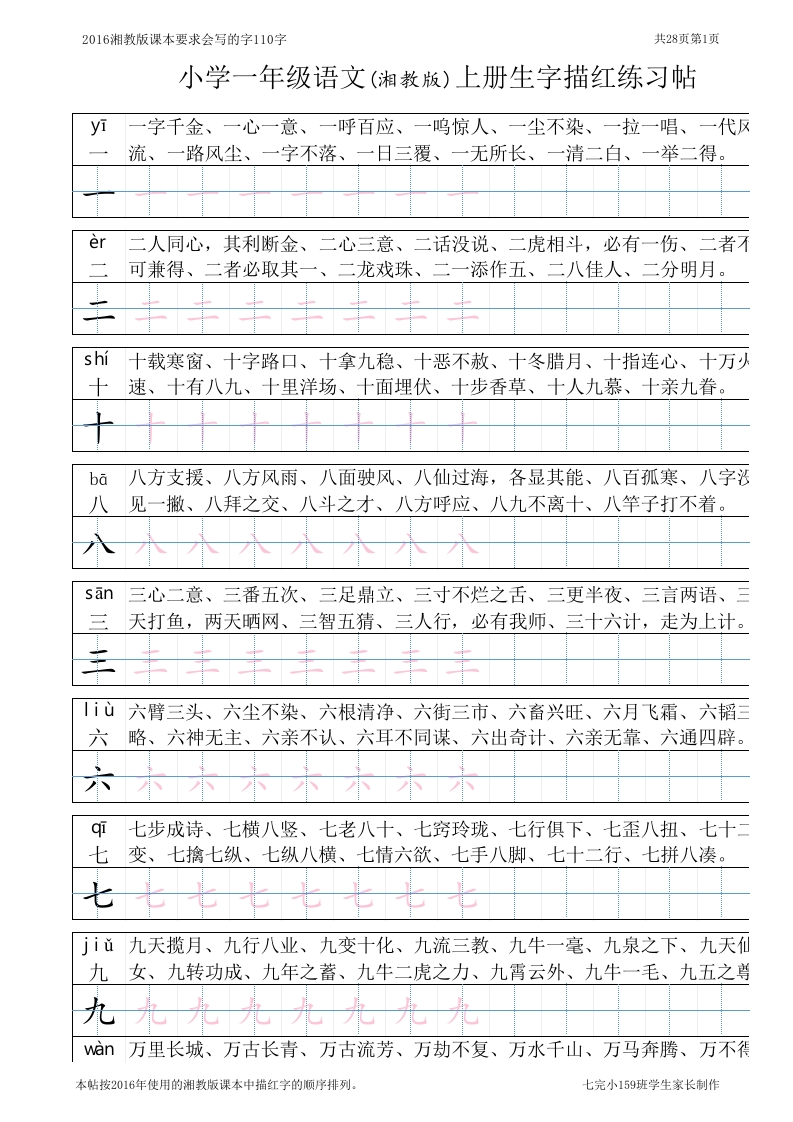 2016湘教版课本要求会写的字110字 共28页第1页
小学一年级语文(湘教版)上册生字描红练习帖
yī 一字千金、一心一意、一呼百应、一鸣惊人、一尘不染、一拉一唱、一代风
一 流、一路风尘、一字不落、一日三覆、一无所长、一清二白、一举二得。
一 一 一 一 一 一 一 一
èr 二人同心，其利断金、二心三意、二话没说、二虎相斗，必有一伤、二者不
二 可兼得、二者必取其一、二龙戏珠、二一添作五、二八佳人、二分明月。
二 二 二 二 二 二 二 二
shí 十载寒窗、十字路口、十拿九稳、十恶不赦、十冬腊月、十指连心、十万火
十 速、十有八九、十里洋场、十面埋伏、十步香草、十人九慕、十亲九眷。
十 十 十 十 十 十 十 十
bā 八方支援、八方风雨、八面驶风、八仙过海，各显其能、八百孤寒、八字没
八 见一撇、八拜之交、八斗之才、八方呼应、八九不离十、八竿子打不着。
八 八 八 八 八 八 八 八
sān 三心二意、三番五次、三足鼎立、三寸不烂之舌、三更半夜、三言两语、三
三 天打鱼，两天晒网、三智五猜、三人行，必有我师、三十六计，走为上计。
三 三 三 三 三 三 三 三
liù 六臂三头、六尘不染、六根清净、六街三市、六畜兴旺、六月飞霜、六韬三
六 略、六神无主、六亲不认、六耳不同谋、六出奇计、六亲无靠、六通四辟。
六 六 六 六 六 六 六 六
qī 七步成诗、七横八竖、七老八十、七窍玲珑、七行俱下、七歪八扭、七十二
七 变、七擒七纵、七纵八横、七情六欲、七手八脚、七十二行、七拼八凑。
七 七 七 七 七 七 七 七
jiǔ 九天揽月、九行八业、九变十化、九流三教、九牛一毫、九泉之下、九天仙
九 女、九转功成、九年之蓄、九牛二虎之力、九霄云外、九牛一毛、九五之尊
九 九 九 九 九 九 九 九
wàn 万里长城、万古长青、万古流芳、万劫不复、万水千山、万马奔腾、万不得
本帖按2016年使用的湘教版课本中描红字的顺序排列。 七完小159班学生家长制作